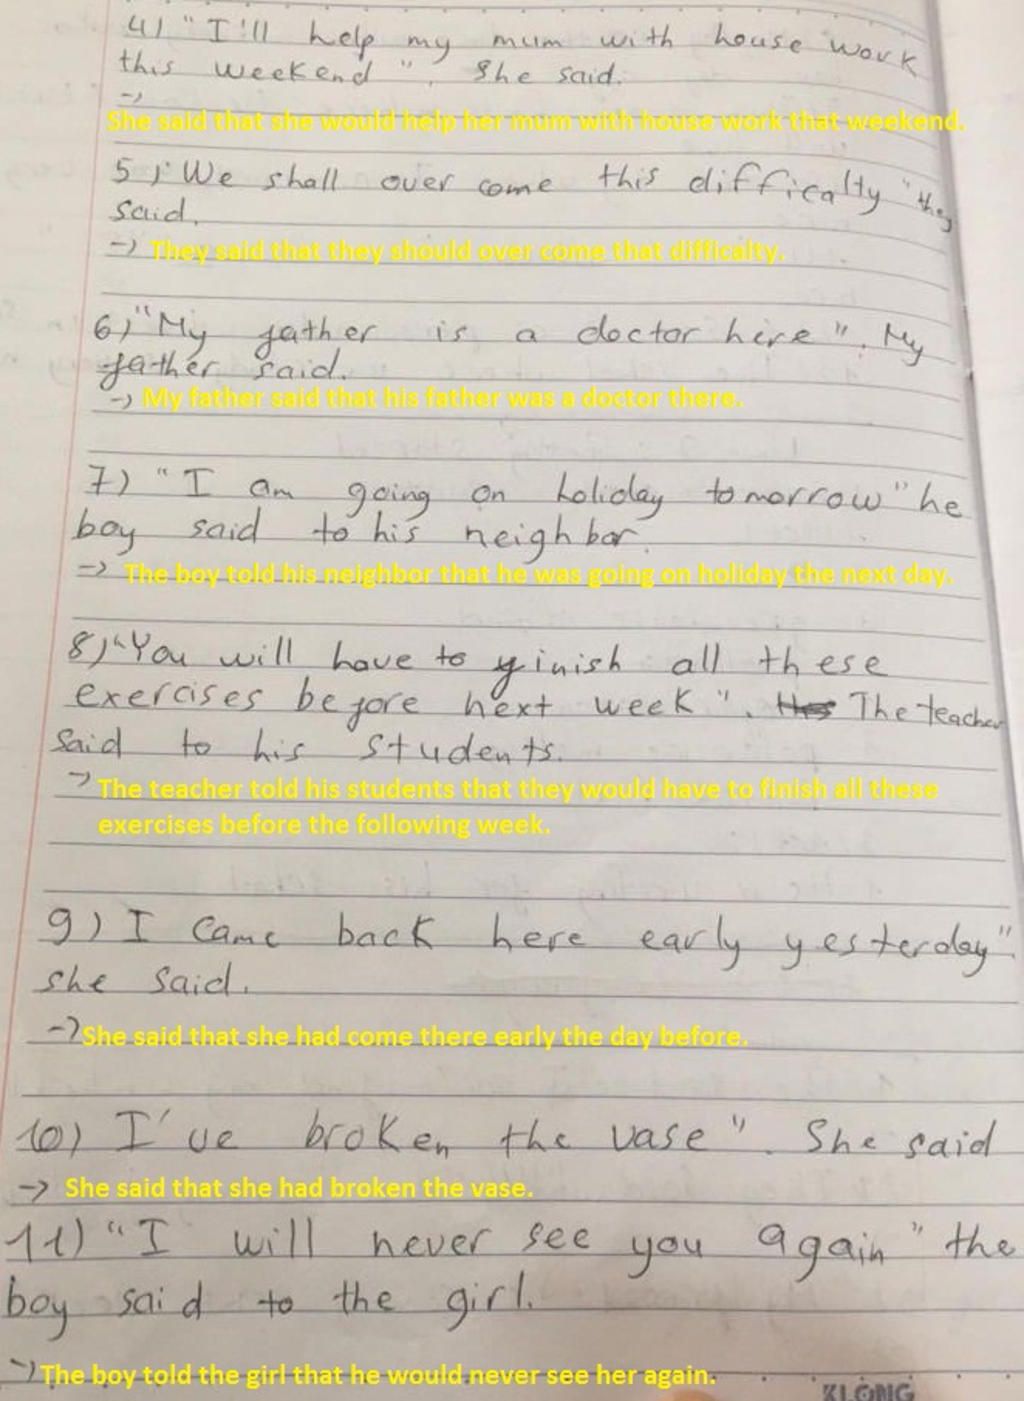 4) "I'll help my mum with house work
this weekend". She said.
→
She said that she would help her mum with house work that weekend.
5) "We shall over come this difficalty" they
said.
→ They said that they should over come that difficalty.
6) "My father is a doctor here". My
father said.
→ My father said that his father was a doctor there.
7) "I am going on holiday tomorrow" he
boy said to his neighbor.
→ The boy told his neighbor that he was going on holiday the next day.
8) "You will have to finish all these
exercises before next week". The teacher
said to his students.
→ The teacher told his students that they would have to finish all these
exercises before the following week.
9) I came back here early yesterday".
she said.
→ She said that she had come there early the day before.
10) I've broken the vase". She said
→ She said that she had broken the vase.
11) "I will never see you again" the
boy said to the girl.
→ The boy told the girl that he would never see her again.
KLONG